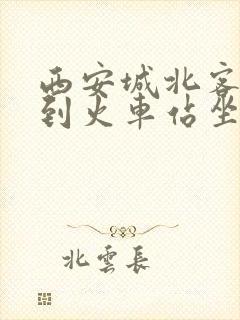 西安城北客
到火車佔坐
北雲長